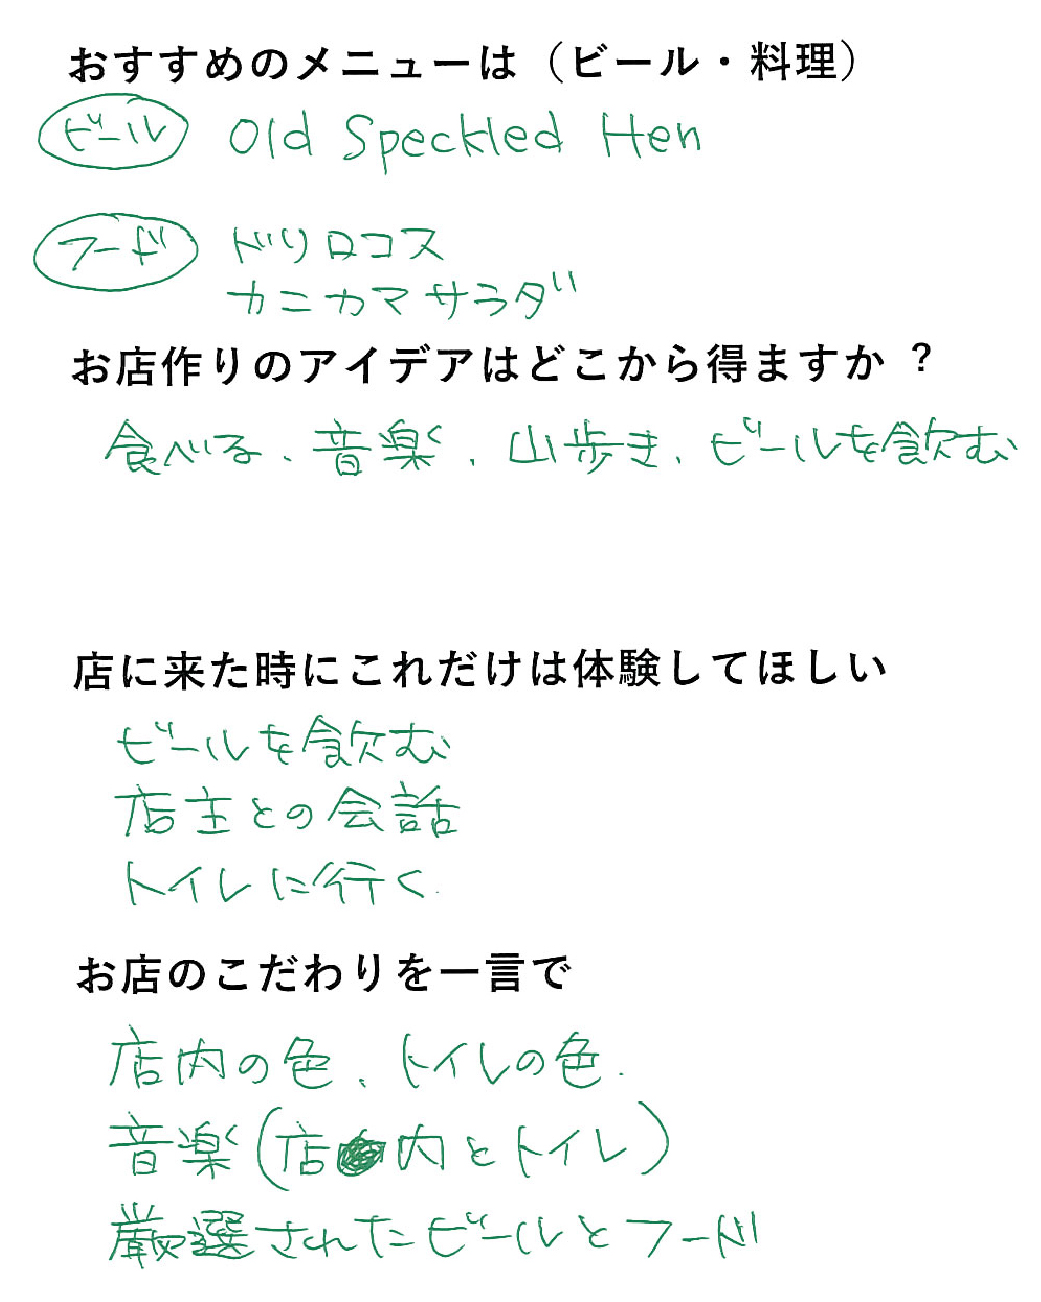 おすすめのメニューは（ビール・料理）
ビール Old Speckled Hen
フード ドリロコス
カニカマサラダ
お店作りのアイデアはどこから得ますか？
食べる、音楽、山歩き、ビールを飲む
店に来た時にこれだけは体験してほしい
ビールを飲む
店主との会話
トイレに行く.
お店のこだわりを一言で
店内の色、トイレの色.
音楽(店内とトイレ)
厳選されたビールとフード